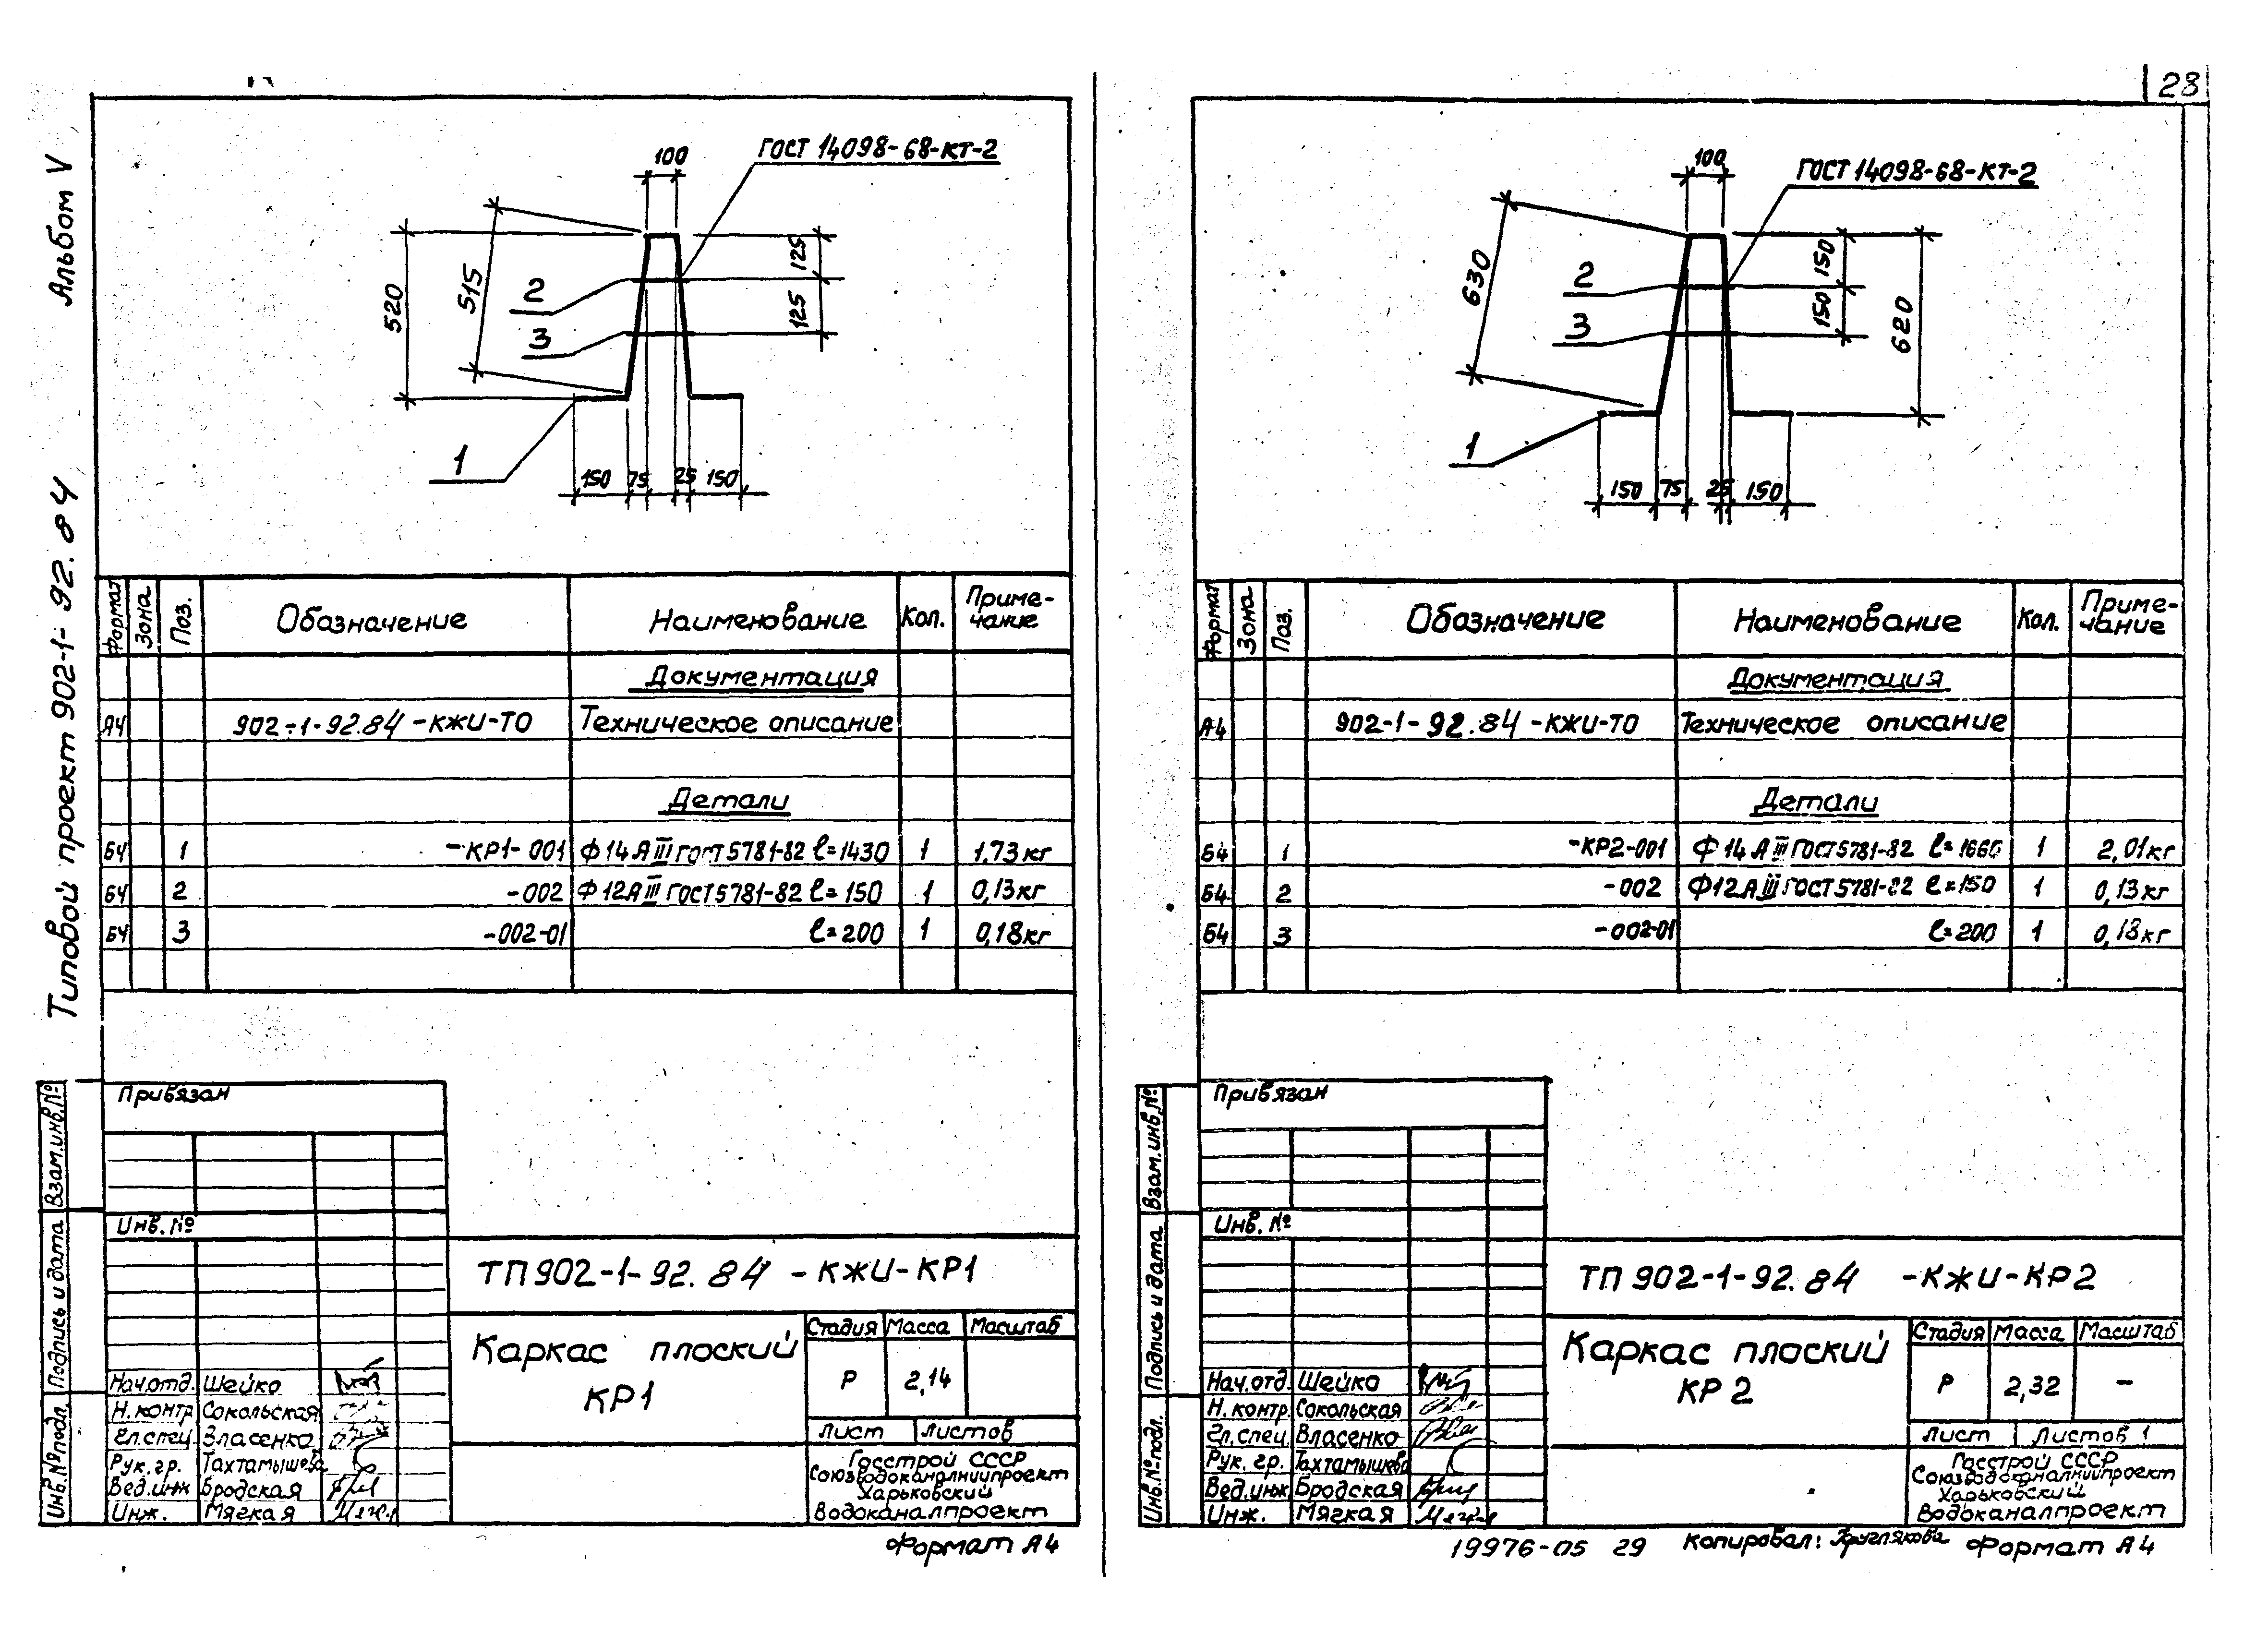 28
Альбом V
Типовой проект 902-1-92.84
ГОСТ 14098-68-КТ-2
100
520
515
125
125
2
3
1
150 75 25 150
Формат Зона Поз. Обозначение Наименование Кол. Приме-
чание
Документация
А4 902-1-92.84-КЖИ-ТО Техническое описание
Детали
Б4 1 -КР1-001 Ф14АIII ГОСТ 5781-82 ℓ=1430 1 1,73кг
Б4 2 -002 Ф12АIII ГОСТ 5781-82 ℓ=150 1 0,13кг
Б4 3 -002-01 ℓ=200 1 0,18кг
Привязан
Инв. №
Взам.инв.№
Подпись и дата
Инв.№подл.
ТП 902-1-92.84 -КЖИ-КР1
Каркас плоский
КР1
Стадия Масса Масштаб
Р 2,14
Лист Листов
Нач.отд. Шейко
Н.контр Сокольская
Гл.спец. Власенко
Рук.гр. Тахтамышева
Вед.инж Бродская
Инж. Мягкая
Госстрой СССР
Союзводоканалниипроект
Харьковский
Водоканалпроект
Формат А4
ГОСТ 14098-68-КТ-2
100
630
150
150
620
2
3
1
150 75 25 150
Формат Зона Поз. Обозначение Наименование Кол. Приме-
чание
Документация
А4 902-1-92.84-КЖИ-ТО Техническое описание
Детали
Б4 1 -КР2-001 Ф14АIII ГОСТ 5781-82 ℓ=1660 1 2,01кг
Б4 2 -002 Ф12АIII ГОСТ 5781-82 ℓ=150 1 0,13кг
Б4 3 -002-01 ℓ=200 1 0,18кг
Привязан
Инв. №
Взам.инв.№
Подпись и дата
Инв.№подл.
ТП 902-1-92.84 -КЖИ-КР2
Каркас плоский
КР2
Стадия Масса Масштаб
Р 2,32 –
Лист Листов 1
Нач.отд. Шейко
Н.контр. Сокольская
Гл.спец Власенко
Рук.гр. Тахтамышева
Вед.инж Бродская
Инж. Мягкая
Госстрой СССР
Союзводоканалниипроект
Харьковский
Водоканалпроект
19976-05 29 Копировал: Круглякова Формат А4